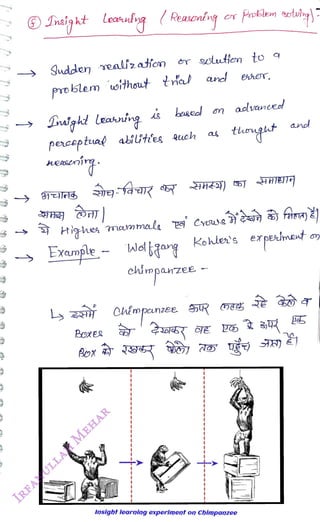 ⑤ Insight Learning (Reasoning or Problem solving) -
→ Sudden realization or solution to a
problem without trial and error.
→ Insight Learning is based on advanced
perceptual abilities such as thought and
reasoning.
→ अचानक सोच-विचार कर समस्या का समाधान
समझ लेना |
→ ये Higher mammals एवं Crows में देखने को मिलता है|
→ Example - Wolfgang Kohler's experiment on
chimpanzee -
↳ इसमें Chimpanzee ऊपर लटक रहे केलो व
Boxes को देखकर वह एक के ऊपर एक
Box को रखकर केलो तक पहुँच जाता है|
IRFANULLAH MEHAR
Insight learning experiment on Chimpanzee